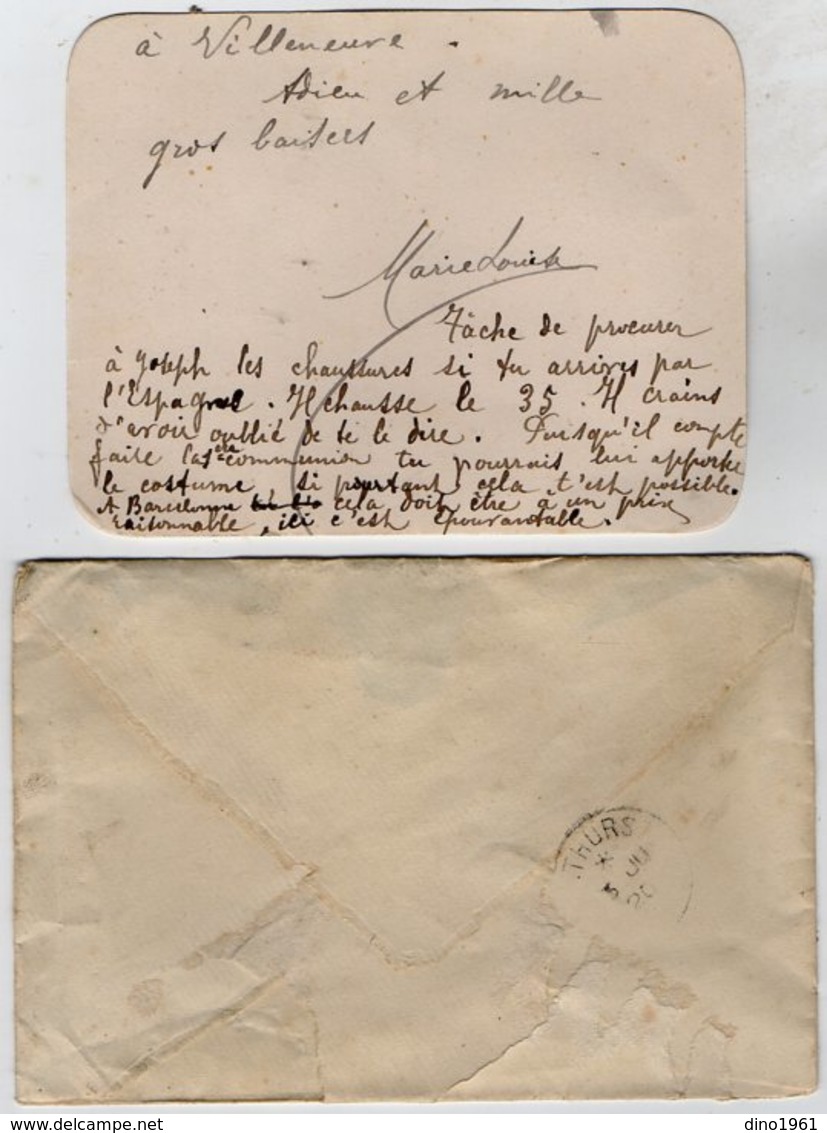 à Villeneuve.
Adieu et mille
gros baisers
Marie Louise
Tâche de procurer
à Joseph les chaussures si tu arrives par
l'Espagne. Il chausse le 35. Il crains
d'avoir oublié de te le dire. Puisqu'il compte
faire la 1ère communion tu pourrais lui apporter
le costume, si pourtant cela t'est possible.
A Barcelonne cela doit être à un prix
raisonnable, ici c'est épouvantable.
THURS
* JU
5 20
www.delcampe.net
dino1961